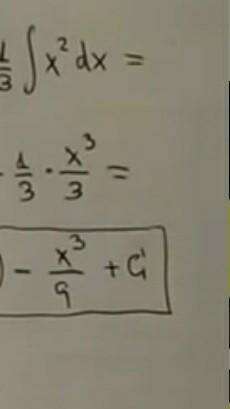 1/3 ∫ x² dx =
- 1/3 · x³/3 =
) - x³/9 + C